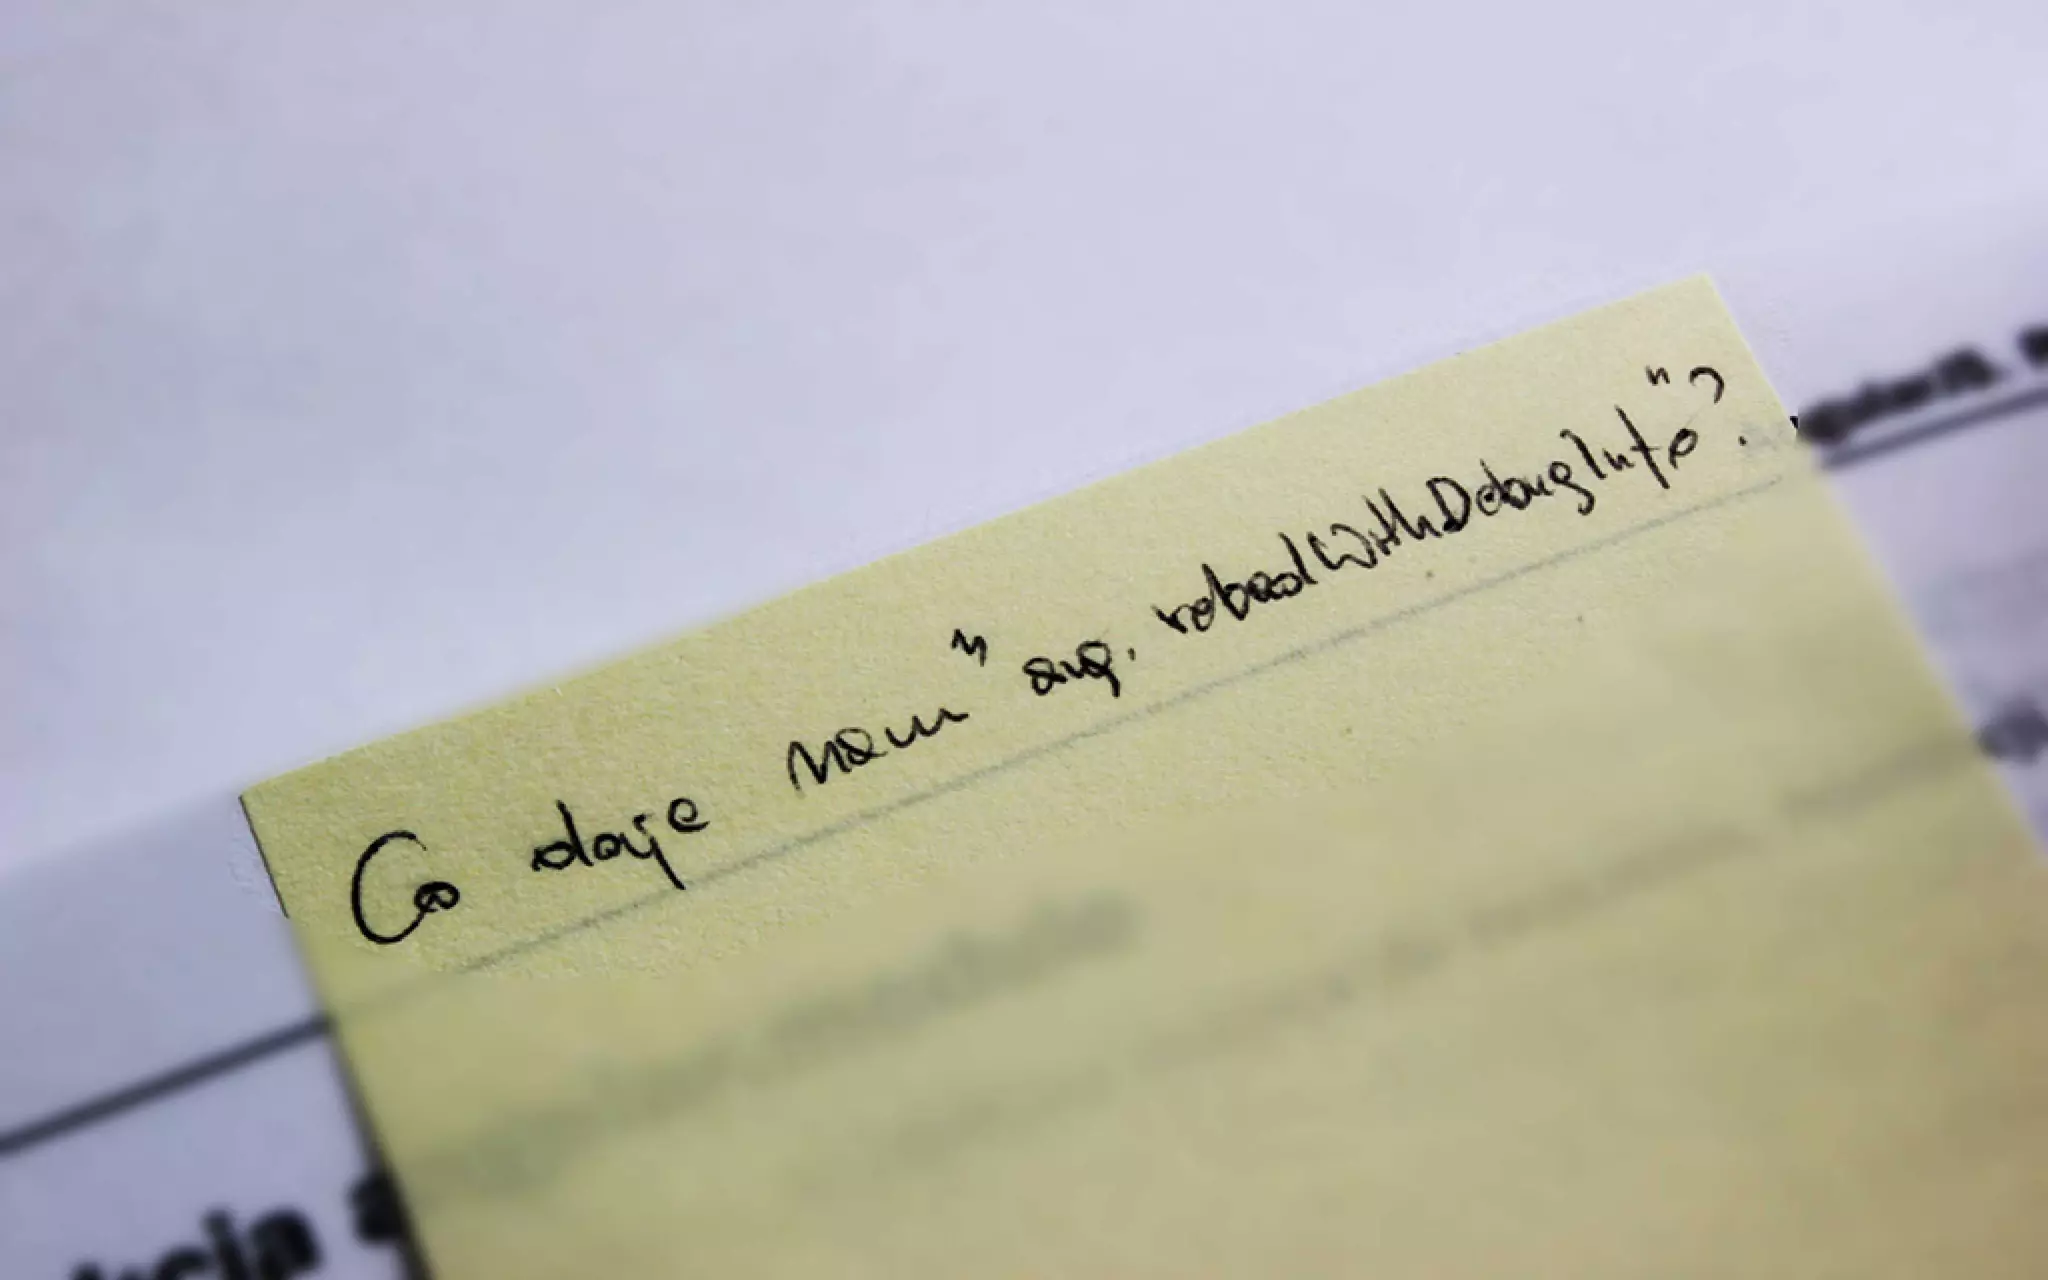 Co daje nam "ang. reloadWithDebugInfo"?
kcja